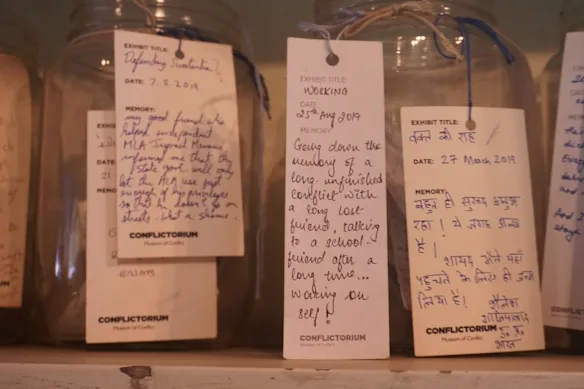 EXHIBIT TITLE:
DATE: 7.5.2019
MEMORY:
my good friend who
helped independent
MLA Jignesh Mevani
informed me that the
state govt. will only
let the MLA use just
enough of his privileges
so that he doesn't go on
streets. What a shame.
CONFLICTORIUM
Museum of Conflict
CONFLICTORIUM
Museum of Conflict
EXHIBIT TITLE:
WORKING
DATE:
25th Aug 2019
MEMORY:
Going down the
memory of a
long-unfinished
conflict with
a long lost
friend, talking
to a school
friend after a
long time...
working on
self!
CONFLICTORIUM
Museum of Conflict
EXHIBIT TITLE:
की राह
DATE: 27 March 2019
MEMORY:
बहुत ही सुखद अनुभव
रहा! ये जगह
है!
शायद मैंने यहाँ
पहुंचने के लिए ही जन्म
लिया है!
शैलेश
उ० प्र०
भारत
CONFLICTORIUM
Museum of Conflict